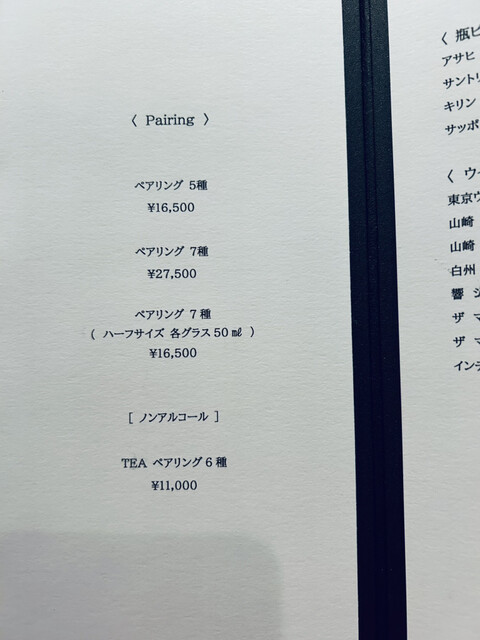 〈 Pairing 〉
ペアリング 5種
¥16,500
ペアリング 7種
¥27,500
ペアリング 7種
( ハーフサイズ 各グラス50㎖ )
¥16,500
[ ノンアルコール ]
TEA ペアリング6種
¥11,000
〈 瓶ビ
アサヒ
サントリ
キリン
サッポ
〈 ウ
東京ウ
山崎
山崎
白州
響 ジ
ザ マ
ザ マ
インチ